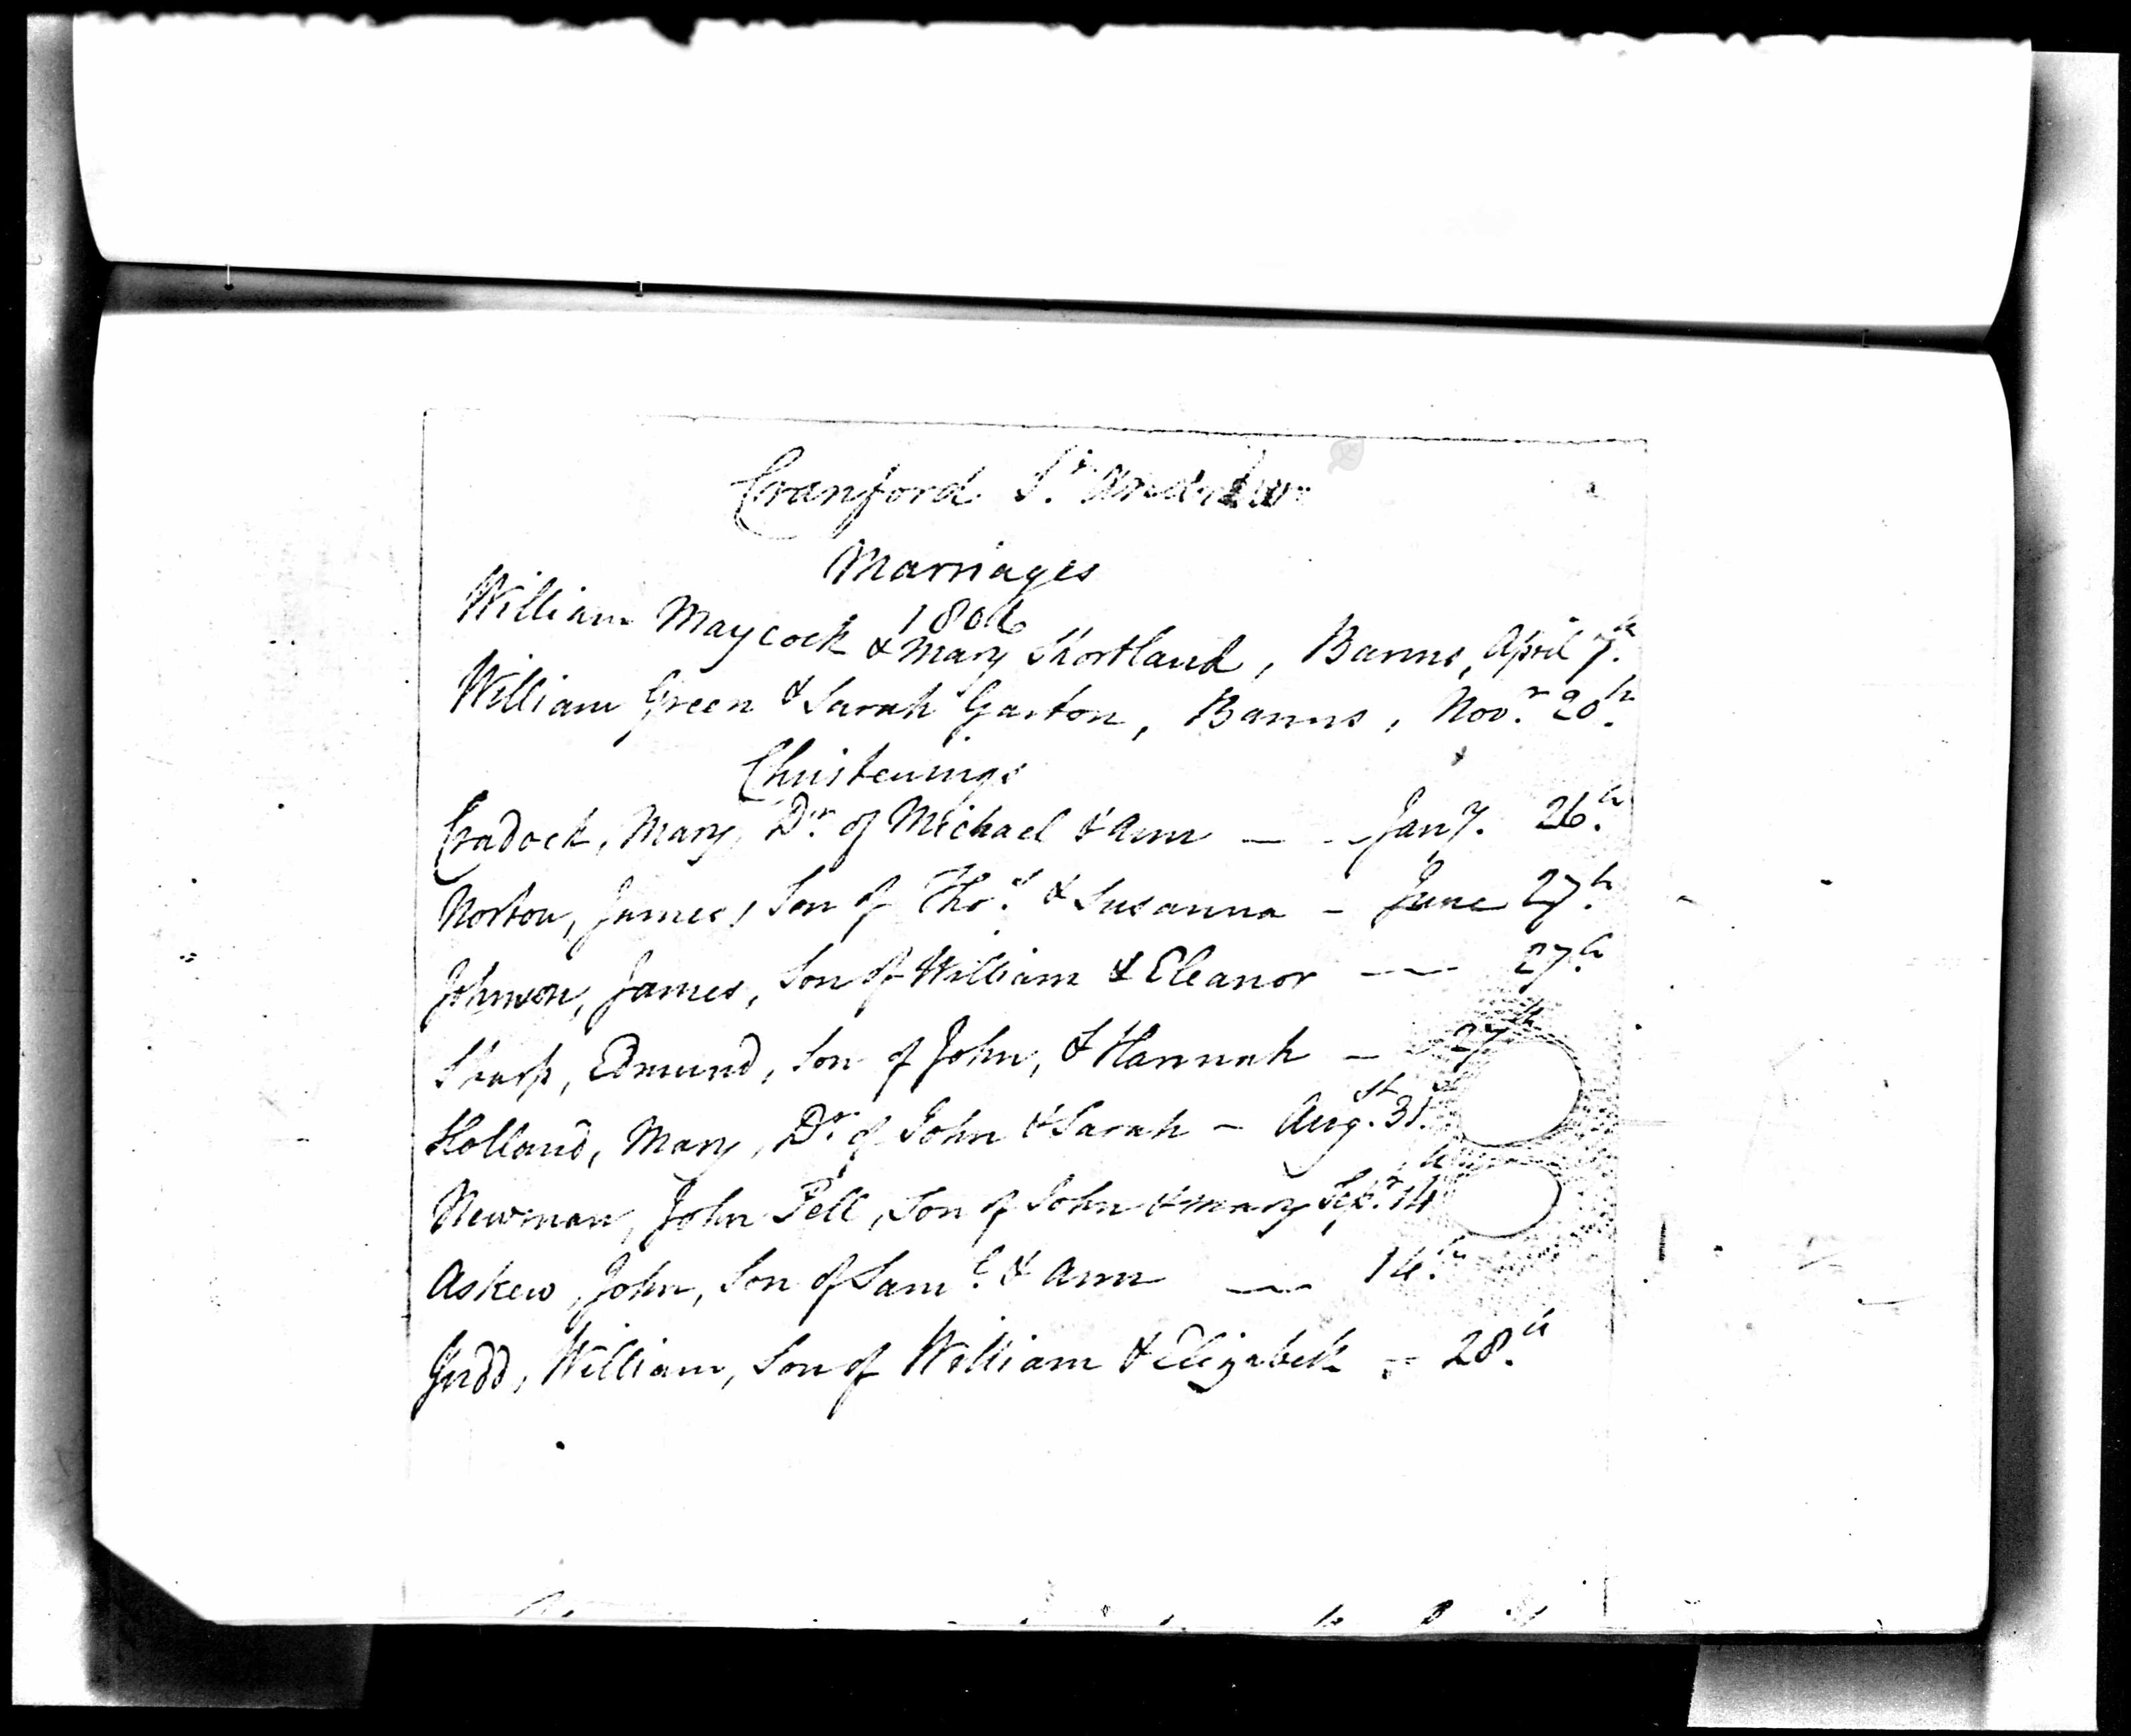 Cranford St. Andrew
Marriages
1806
William Maycock & Mary Shortland, Banns, April 7th.
William Green & Sarah Garton, Banns, Novr. 20th.
Christenings
Cradock, Mary, Dr. of Michael & Ann — - Jany. 26th.
Norton, James, Son of Thos. & Susanna - June 27th.
Johnson, James, Son of William & Eleanor — 27th.
Sharp, Edmund, Son of John, & Hannah — 27th
Holland, Mary, Dr. of John & Sarah - Aug. 31st.
Newman, John Pell, Son of John & Mary Sepr. 14th
Askew, John, Son of Saml. & Ann — 14th.
Judd, William, Son of William & Elizabeth - 28th.